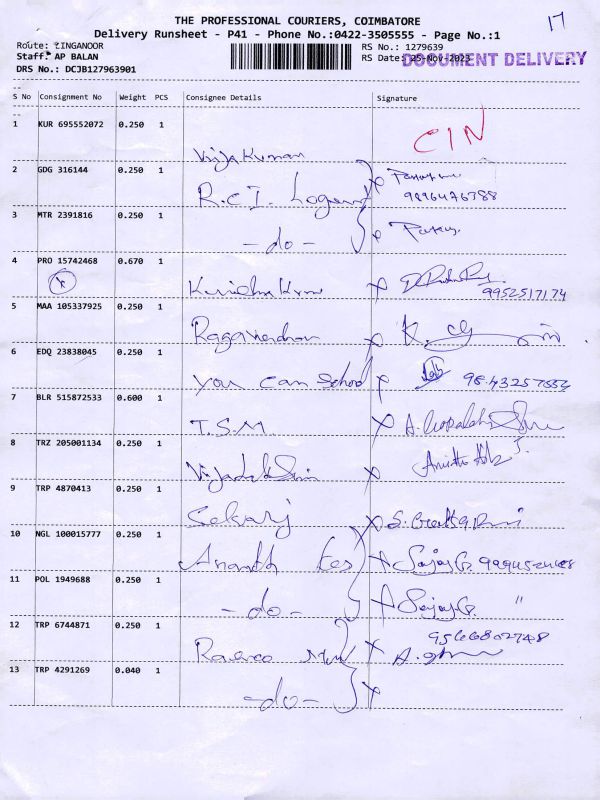 17
THE PROFESSIONAL COURIERS, COIMBATORE
Delivery Runsheet - P41 - Phone No.:0422-3505555 - Page No.:1
Route: ZINGANOOR
RS No.: 1279639
Staff: AP BALAN
RS Date: 25-Nov-2023
DOCUMENT DELIVERY
DRS No.: DCJB127963901
S No Consignment No Weight PCS Consignee Details Signature
1 KUR 695552072 0.250 1
CIN
Vijakumar
2 GDG 316144 0.250 1
R.C.I.
9896476388
3 MTR 2391816 0.250 1
-do-
4 PRO 15742468 0.670 1
9952517174
5 MAA 105337925 0.250 1
K.
6 EDQ 23838045 0.250 1
you can school
7 BLR 515872533 0.600 1
T.S.M.
8 TRZ 205001134 0.250 1
9 TRP 4870413 0.250 1
Sekarj
10 NGL 100015777 0.250 1
Ananth
11 POL 1949688 0.250 1
-do- "
12 TRP 6744871 0.250 1
9566802748
13 TRP 4291269 0.040 1
-do-